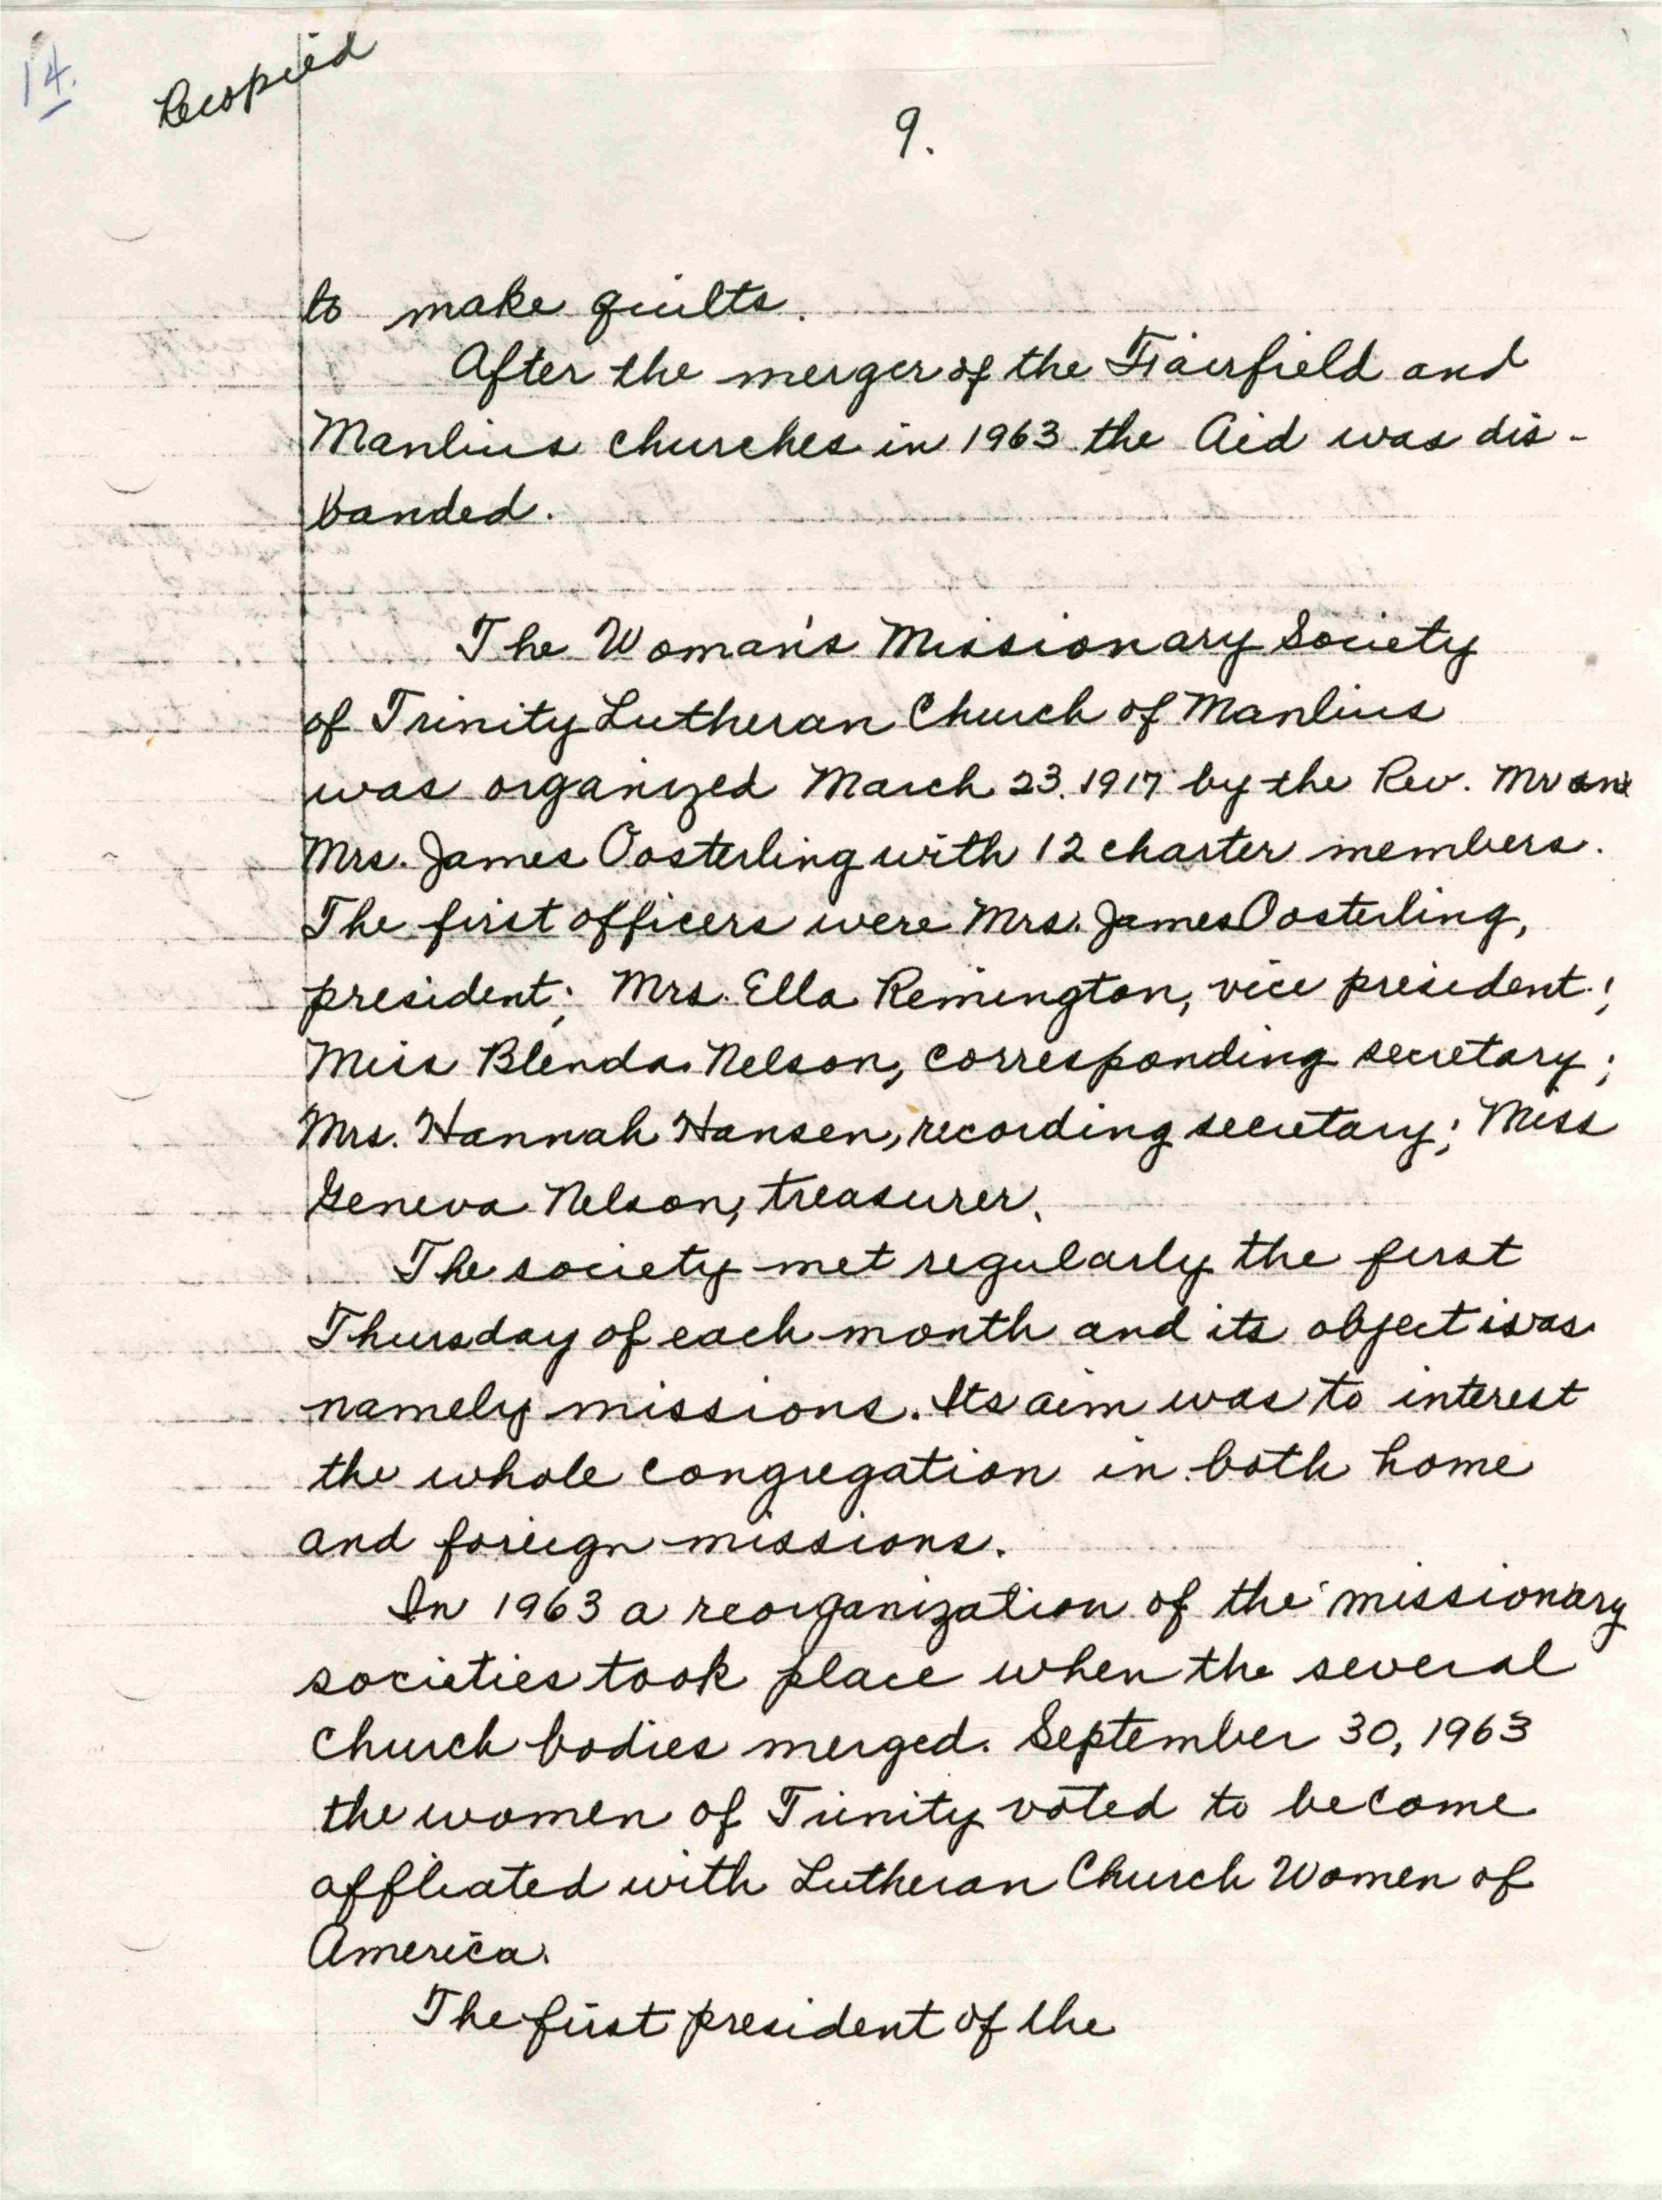 14.
Recopied
9.
to make quilts.
After the merger of the Fairfield and
Manlius churches in 1963 the Aid was dis-
banded.
The Woman's Missionary Society
of Trinity Lutheran Church of Manlius
was organized March 23, 1917 by the Rev. Mr and
Mrs. James Oosterling with 12 charter members.
The first officers were Mrs. James Oosterling,
president; Mrs. Ella Remington, vice president;
Miss Blenda Nelson, corresponding secretary;
Mrs. Hannah Hansen, recording secretary; Miss
Geneva Nelson, treasurer.
The society met regularly the first
Thursday of each month and its object was
namely missions. Its aim was to interest
the whole congregation in both home
and foreign missions.
In 1963 a reorganization of the missionary
societies took place when the several
church bodies merged. September 30, 1963
the women of Trinity voted to become
affliated with Lutheran Church Women of
America.
The first president of the